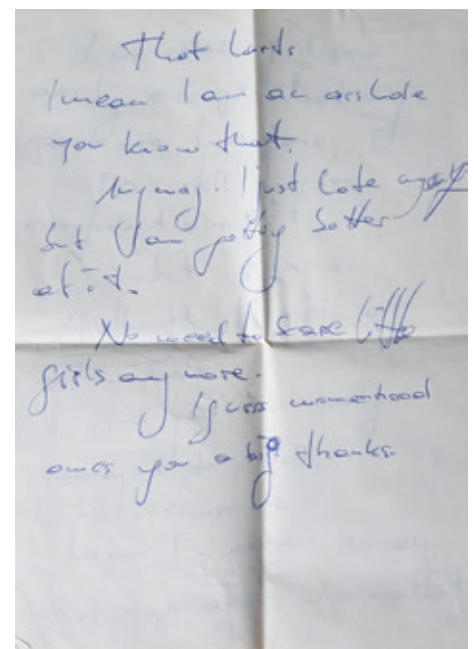 That hurts
I mean I am an asshole
you know that.
Anyway. I just hate myself
but I am getting better
at it.
No need to scare little
girls any more.
I guess womenhood
owes you a big thanks.